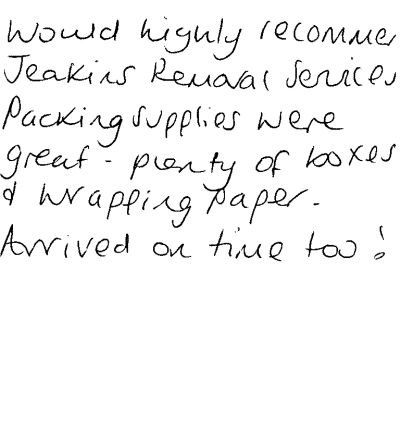 Would highly recommen
Jeakins Removal Services
Packing supplies were
great - plenty of boxes
& wrapping paper.
Arrived on time too!